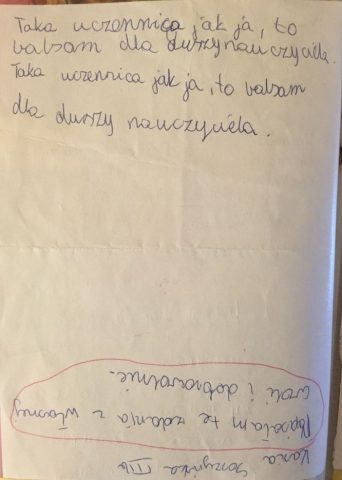 Taka uczennica jak ja, to
balsam dla duszy nauczyciela.
Taka uczennica jak ja, to balsam
dla duszy nauczyciela.
IIIb
Napisałam te zdania z własnej
woli i dobrowolnie.